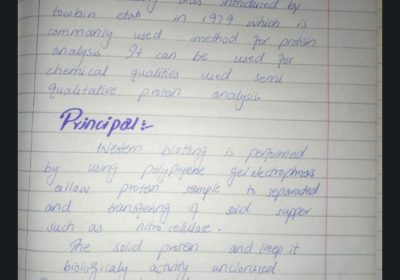 was introduced by
towbin etal in 1979 which is
commanly used method for protein
analysis. It can be used for
chemical qualities used semi
qualitative protein analysis.
Principal:-
Western blotting is performed
by using gel electrophross
allow protein sample to separated
and transfering of solid supper
such as nitro cellulose.
The solid protein and keep it
biologicaly activity unclosured.